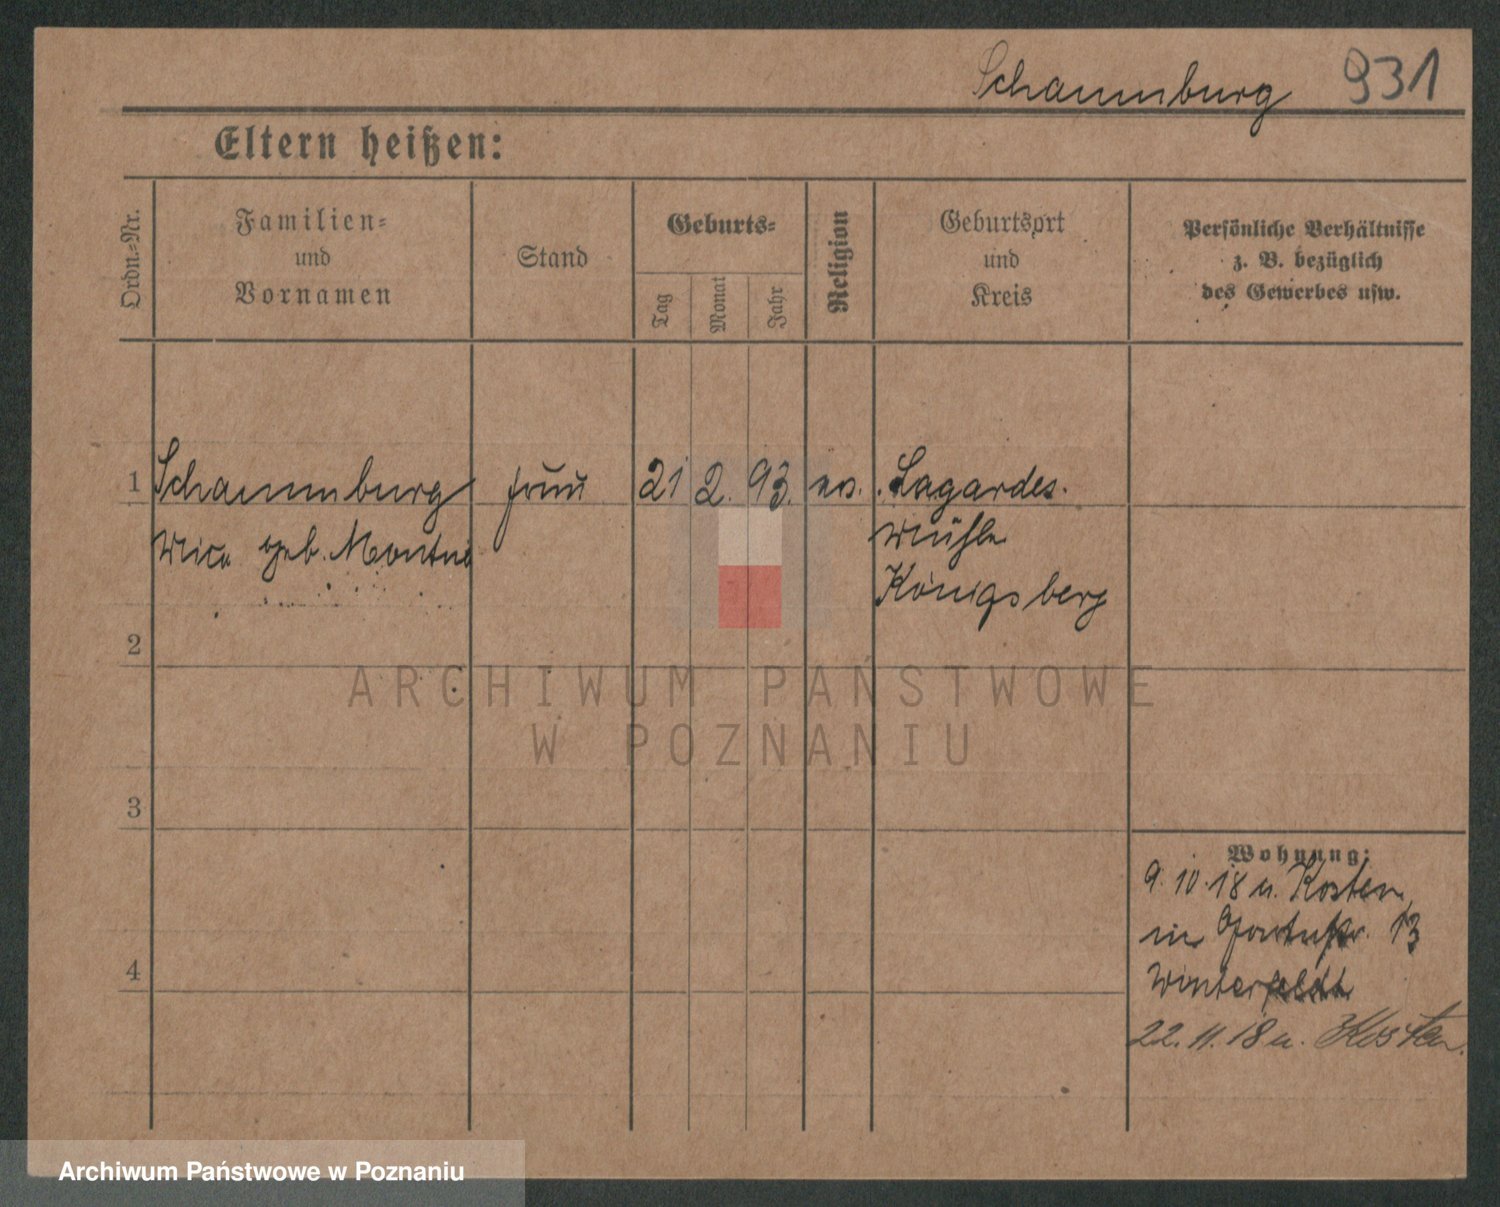 Schaumburg 931
Eltern heißen:
Ordn.-Nr.
Familien-
und
Vornamen
Stand
Geburts-
Tag
Monat
Jahr
Religion
Geburtsort
und
Kreis
Persönliche Verhältnisse
z. B. bezüglich
des Gewerbes usw.
1 Schaumburg Frau 21 2. 93. Lagardes.
geb. mühle
Königsberg
2
ARCHIWUM PAŃSTWOWE
W POZNANIU
3
4
Wohnung:
9. 10. 18 n. Kosten
13
Winterfeldt
22. 11. 18 n. Kosten.
Archiwum Państwowe w Poznaniu